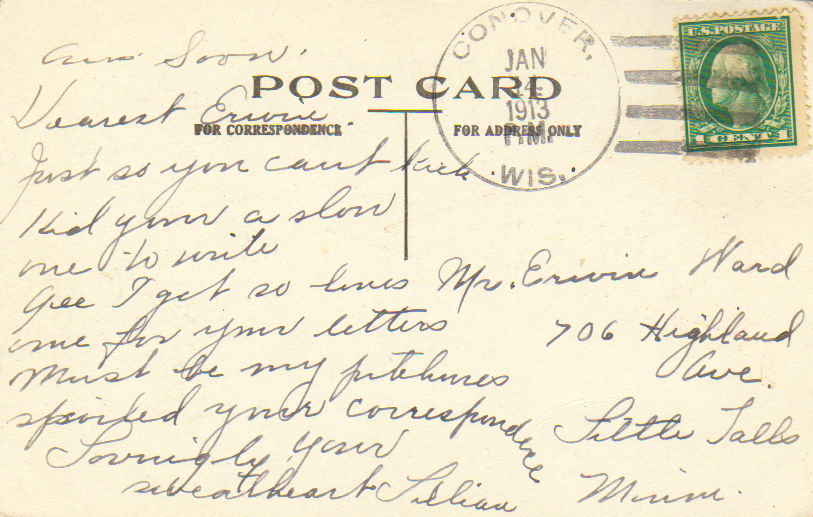 Ans. Soon.
POST CARD
Dearest Erwin.
FOR CORRESPONDENCE
FOR ADDRESS ONLY
Just so you cant kick
Kid your a slow
one to write
Gee I get so lones
ome for your letters
Must be my
spoiled your correspondence
Lovingly your
sweatheart Lillian
CONOVER,
JAN
14
1913
P.M.
WIS.
U.S. POSTAGE
CENT
Mr. Erwin Ward
706 Highland
Ave.
Little Falls
Minn.